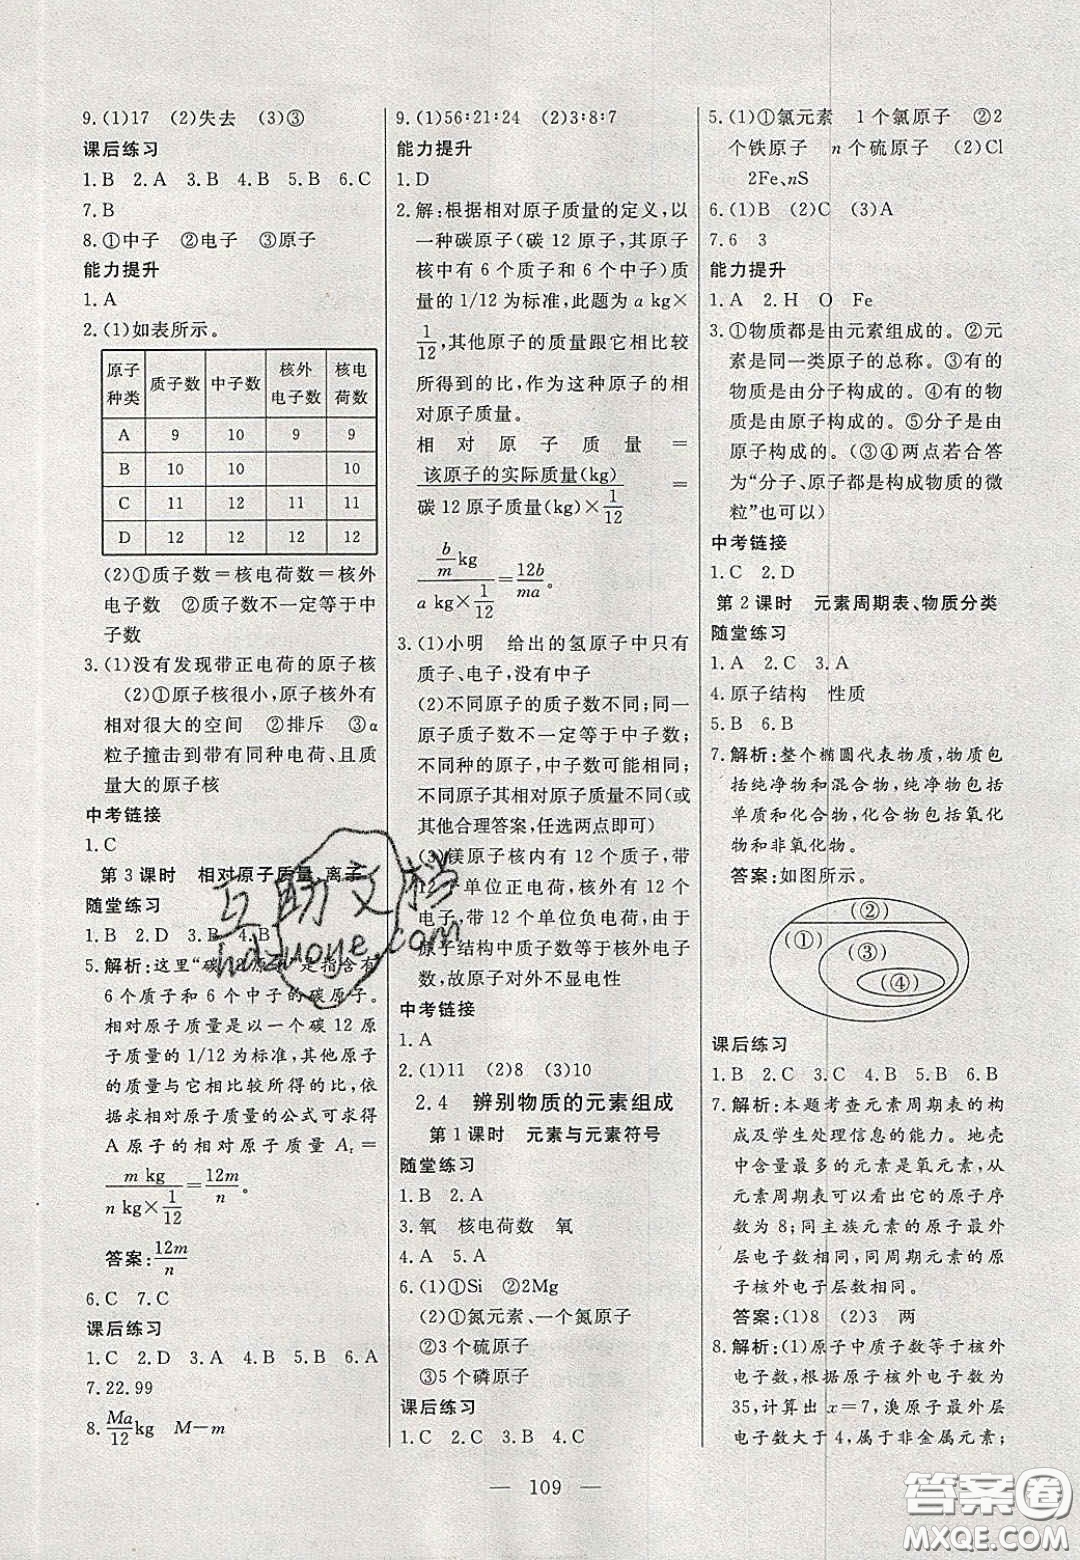 9.(1)17　(2)失去　(3)③
课后练习
1.B　2.A　3.B　4.B　5.B　6.C
7.B
8.①中子　②电子　③原子
能力提升
1.A
2.(1)如表所示。
原子种类　质子数　中子数　核外电子数　核电荷数
A　9　10　9　9
B　10　10　　10
C　11　12　11　11
D　12　12　12　12
(2)①质子数=核电荷数=核外
电子数　②质子数不一定等于中
子数
3.(1)没有发现带正电荷的原子核
(2)①原子核很小,原子核外有
相对很大的空间　②排斥　③α
粒子撞击到带有同种电荷、且质
量大的原子核
中考链接
1.C
第3课时　相对原子质量 离子
随堂练习
1.B　2.D　3.B　4.B
5.解析:这里“碳12原子”是指含有
6个质子和6个中子的碳原子。
相对原子质量是以一个碳12原
子质量的1/12为标准,其他原子
的质量与它相比较所得的比,依
据求相对原子质量的公式可求得
A原子的相对原子质量Ar=
m kg/(n kg×1/12)=12m/n。
答案:12m/n
6.C　7.C
课后练习
1.C　2.D　3.B　4.B　5.B　6.A
7.22.99
8.Ma/12 kg　M-m
9.(1)56:21:24　(2)3:8:7
能力提升
1.D
2.解:根据相对原子质量的定义,以
一种碳原子(碳12原子,其原子
核中有6个质子和6个中子)质
量的1/12为标准,此题为a kg×
1/12,其他原子的质量跟它相比较
所得到的比,作为这种原子的相
对原子质量。
相对原子质量=
该原子的实际质量(kg)/(碳12原子质量(kg)×1/12)=
(b/m kg)/(a kg×1/12)=12b/ma。
3.(1)小明　给出的氢原子中只有
质子、电子,没有中子
(2)不同原子的质子数不同;同一
原子质子数不一定等于中子数;
不同种的原子,中子数可能相同;
不同种原子相对原子质量不同(或
其他合理答案,任选两点即可)
(3)镁原子核内有12个质子,带
12个单位正电荷,核外有12个
电子,带12个单位负电荷,由于
原子结构中质子数等于核外电子
数,故原子对外不显电性
中考链接
1.A
2.(1)11　(2)8　(3)10
2.4　辨别物质的元素组成
第1课时　元素与元素符号
随堂练习
1.B　2.A
3.氧　核电荷数　氧
4.A　5.A
6.(1)①Si　②2Mg
(2)①氮元素、一个氮原子
②3个硫原子
③5个磷原子
课后练习
1.C　2.C　3.B　4.C
5.(1)①氯元素　1个氯原子　②2
个铁原子　n个硫原子　(2)Cl
2Fe、nS
6.(1)B　(2)C　(3)A
7.6　3
能力提升
1.A　2.H　O　Fe
3.①物质都是由元素组成的。②元
素是同一类原子的总称。③有的
物质是由分子构成的。④有的物
质是由原子构成的。⑤分子是由
原子构成的。(③④两点若合答
为“分子、原子都是构成物质的微
粒”也可以)
中考链接
1.C　2.D
第2课时　元素周期表、物质分类
随堂练习
1.A　2.C　3.A
4.原子结构　性质
5.B　6.B
7.解析:整个椭圆代表物质,物质包
括纯净物和混合物,纯净物包括
单质和化合物,化合物包括氧化
物和非氧化物。
答案:如图所示。
(2)
(1)
(3)
(4)
课后练习
1.B　2.C　3.D　4.B　5.B　6.B
7.解析:本题考查元素周期表的构
成及学生处理信息的能力。地壳
中含量最多的元素是氧元素,从
元素周期表可以看出它的原子序
数为8;同主族元素的原子最外
层电子数相同,同周期元素的原
子核外电子层数相同。
答案:(1)8　(2)3　两
8.解析:(1)原子中质子数等于核外
电子数,根据核外电子数为
35,计算出x=7,溴原子最外层
电子数大于4,属于非金属元素;
— 109 —
互助文档
hdzuoye.com
答案圈
MXQE.COM